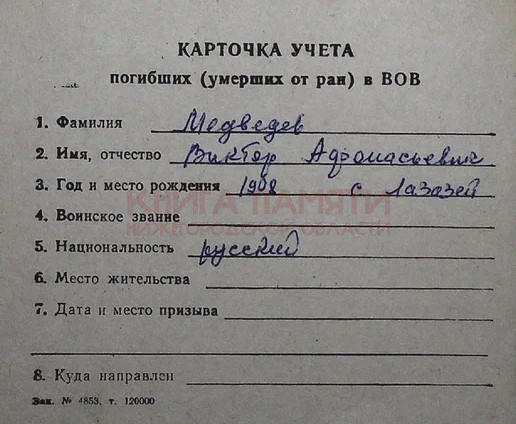 КАРТОЧКА УЧЕТА
погибших (умерших от ран) в ВОВ
1. Фамилия Медведев
2. Имя, отчество Виктор Афонасьевич
3. Год и место рождения 1908 с Лазазей
КНИГА ПАМЯТИ
4. Воинское звание
НИЖЕГОРОДСКОЙ ОБЛАСТИ
5. Национальность русский
6. Место жительства
7. Дата и место призыва
8. Куда направлен
Зак. № 4853, т. 120000